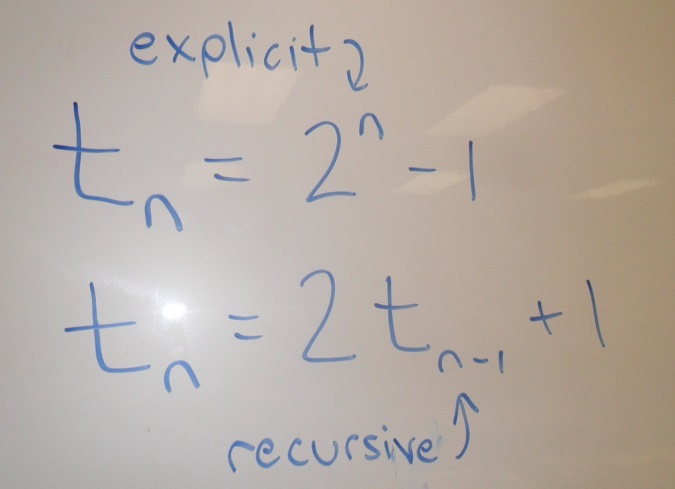 explicit
tₙ = 2ⁿ - 1
tₙ = 2 tₙ₋₁ + 1
recursive